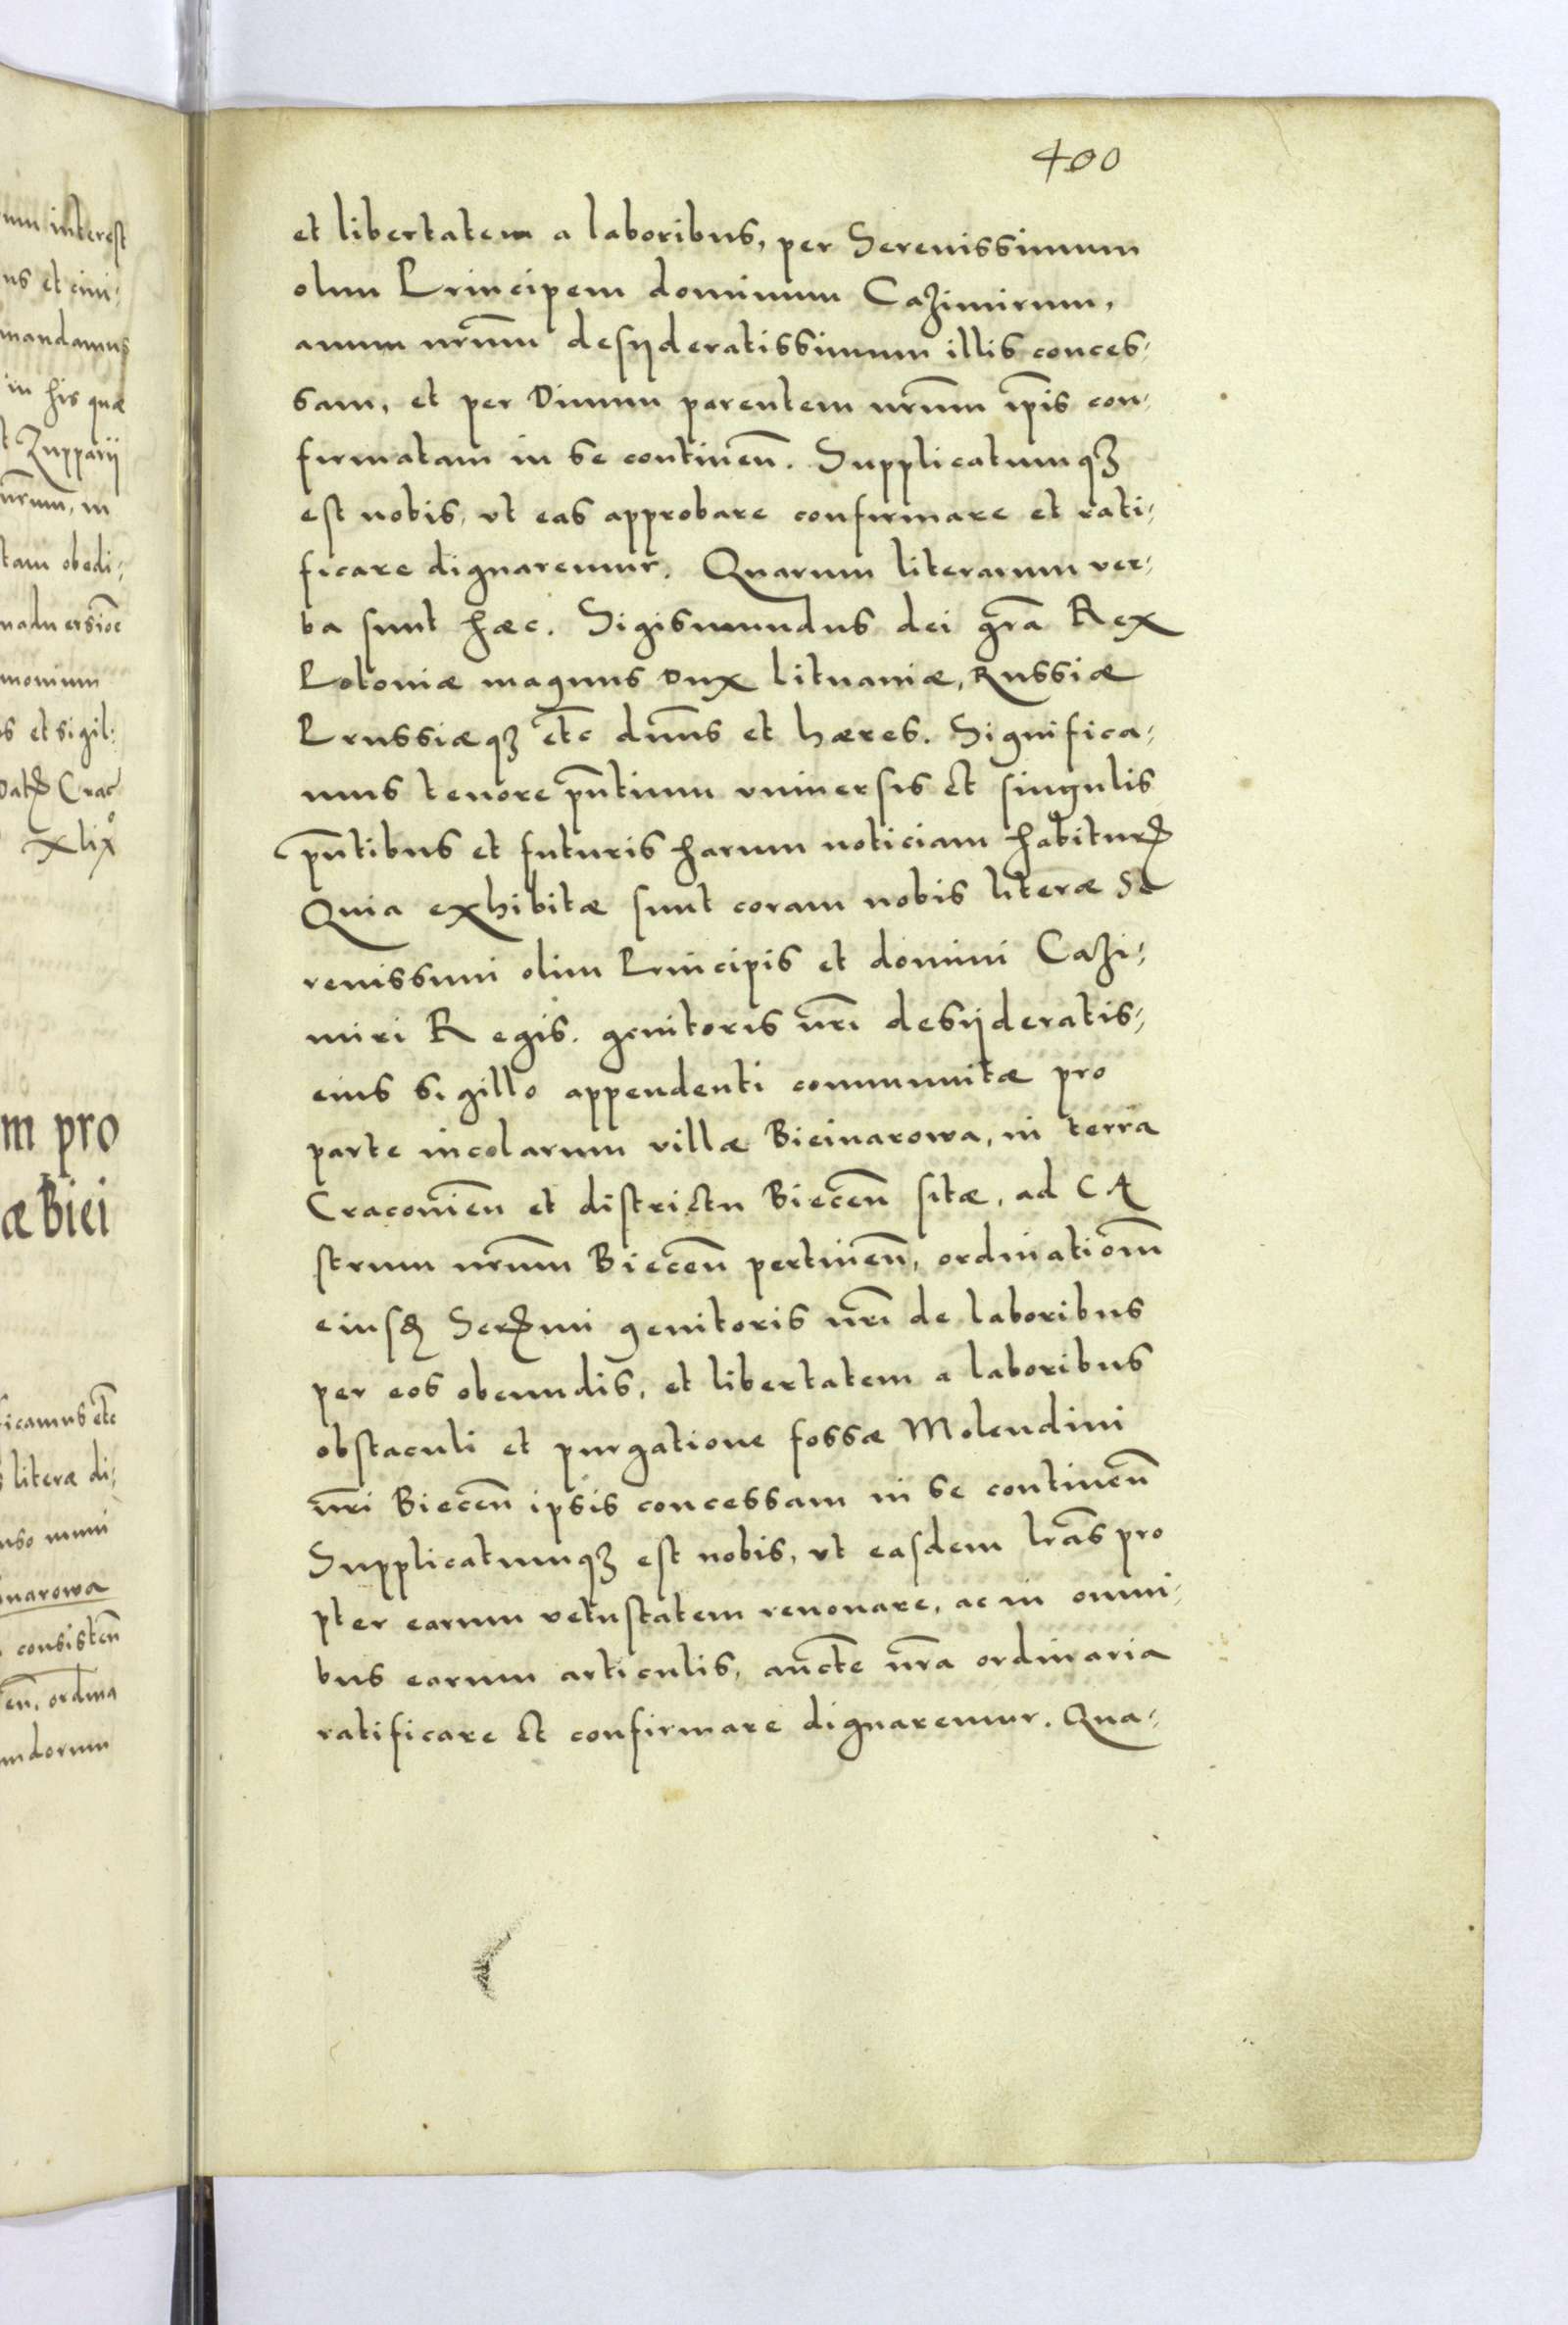 400
et libertatem a laboribus, per Serenissimum
olim Principem dominum Cazimirum,
auum nr̄um desyderatissimum illis conces-
sam, et per Diuum parentem nr̄um ip̄is con-
firmatam in se continen̄. Supplicatumqꝫ
est nobis, vt eas approbare confirmare et rati-
ficare dignaremur. Quarum literarum ver-
ba sunt hæc. Sigismundus dei gr̄a Rex
Poloniæ magnus Dux Lituaniæ, Russiæ
Prussiæqꝫ etc̄ dn̄us et hæres. Significa-
mus tenore pn̄tium vniuersis et singulis
pn̄tibus et futuris harum noticiam habitur̄
Quia exhibitæ sunt coram nobis literæ Se
renissimi olim Principis et domini Cazi-
miri Regis. genitoris nr̄i desyderatis-
eius sigillo appendenti communitæ pro
parte incolarum villæ Bieinarowa, in terra
Cracouien̄ et districtu Biecen̄ sitæ, ad CA
strum nr̄um Biecen̄ pertinen̄, ordinationm̄
eiusd̄ Ser̄mi genitoris nr̄i de laboribus
per eos obeundis, et libertatem a laboribus
obstaculi et purgatione fossæ Molendini
nr̄i Biecen̄ ipsis concessam in se continen̄
Supplicatumqꝫ est nobis, vt easdem lr̄as pro
pter earum vetustatem renouare, ac in omni-
bus earum articulis, auct̄e nr̄a ordinaria
ratificare et confirmare dignaremur. Qua-
um interest
us et ciui-
mandamus
in his quæ
t Zupparij
nr̄um, in
tam obedi-
monium
s et sigil-
Dat̄ Crac̄
xlix°
m pro
æ Biei
ficamus etc̄
literæ di-
uso muni
inarowa
consisten̄
en̄, ordina
undorum